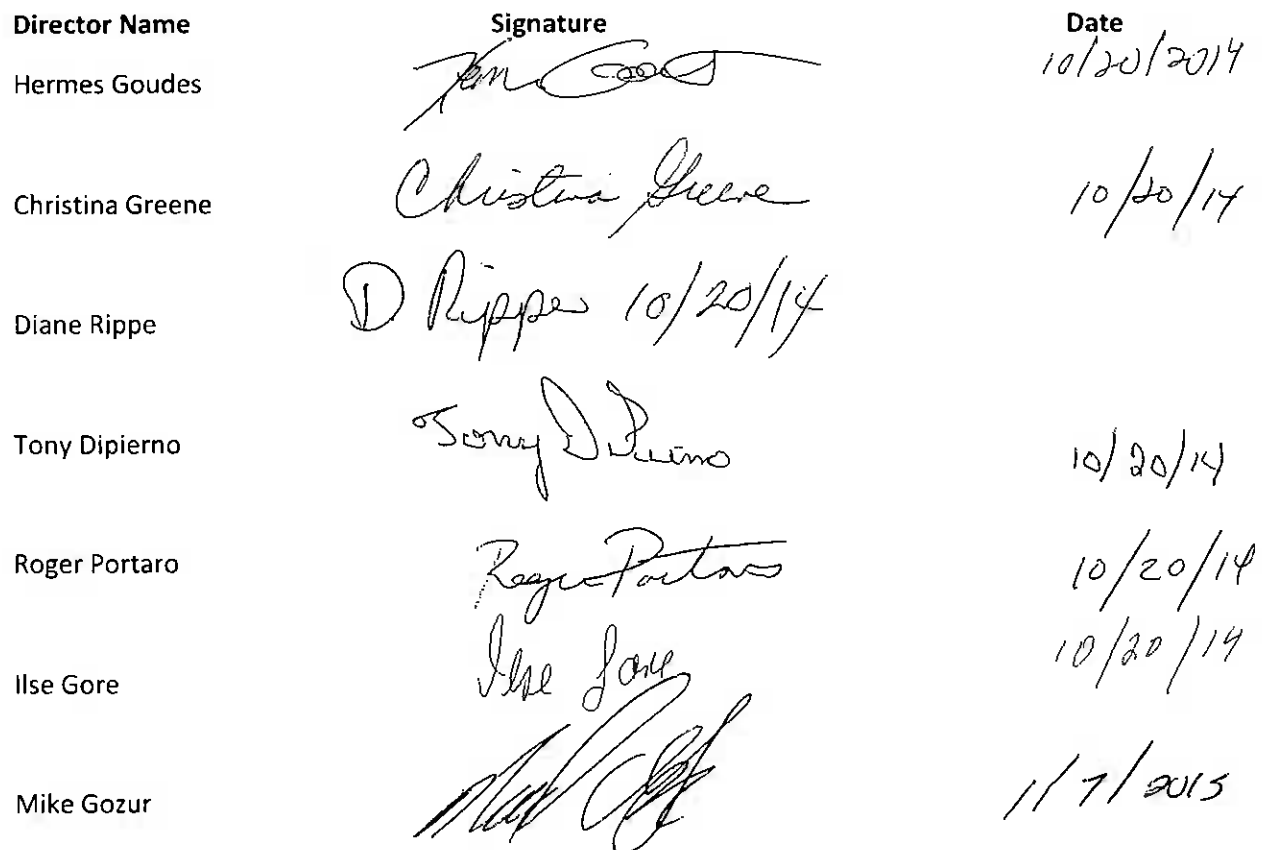 Director Name Signature Date
Hermes Goudes 10/20/2014
Christina Greene Christina Greene 10/20/14
Diane Rippe D Rippe 10/20/14
Tony Dipierno Tony DiPierno 10/20/14
Roger Portaro Roger Portaro 10/20/14
Ilse Gore Ilse Gore 10/20/14
Mike Gozur 1/7/2015